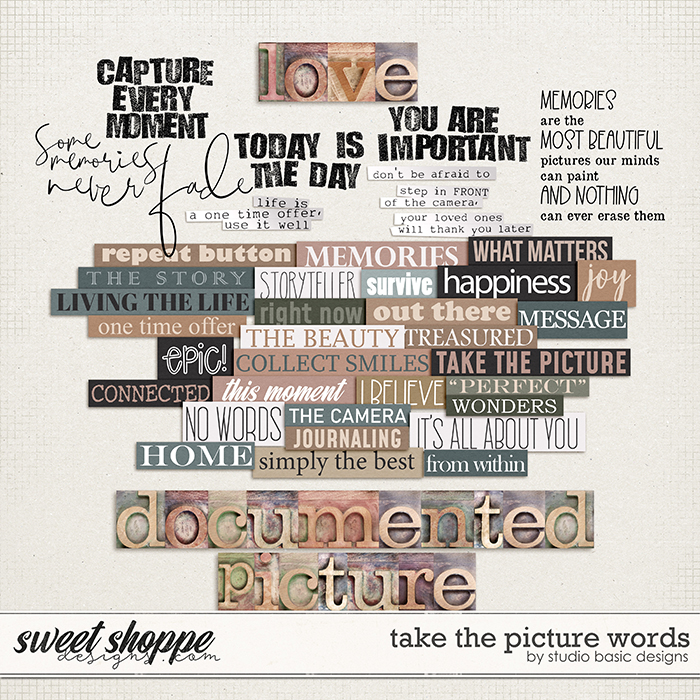 love
CAPTURE
EVERY
MOMENT
Some
memories
never fade
TODAY IS
THE DAY
life is
a one time offer,
use it well
YOU ARE
IMPORTANT
don't be afraid to
step in FRONT
of the camera,
your loved ones
will thank you later
MEMORIES
are the
MOST BEAUTIFUL
pictures our minds
can paint
AND NOTHING
can ever erase them
repeat button
MEMORIES
WHAT MATTERS
THE STORY
STORYTELLER
survive
happiness
joy
LIVING THE LIFE
right now
out there
MESSAGE
one time offer
THE BEAUTY
TREASURED
epic!
COLLECT SMILES
TAKE THE PICTURE
CONNECTED
this moment
I BELIEVE
"PERFECT"
WONDERS
NO WORDS
THE CAMERA
JOURNALING
IT'S ALL ABOUT YOU
HOME
simply the best
from within
documented
picture
sweet shoppe
designs.com
take the picture words
by studio basic designs